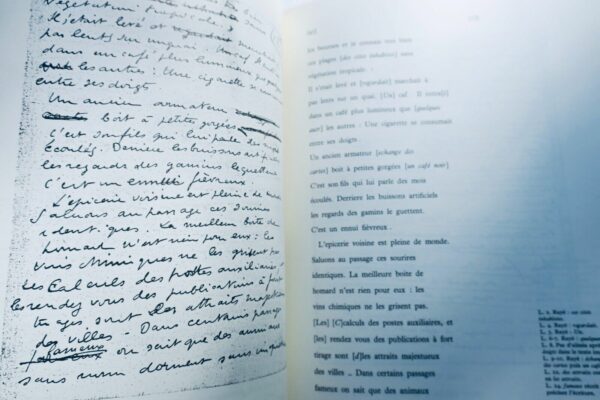 végétation tropicale.
Il s'était levé et
pas lents sur un quai. Un
dans un café plus lumineux que
les autres : Une cigarette se
entre ses doigts.
Un ancien armateur
boit à petites gorgées
C'est son fils qui lui parle des mois
écoulés. Derrière les buissons artificiels
les regards des gamins le guettent.
C'est un ennui fiévreux.
L'épicerie voisine est pleine de monde
Saluons au passage ces sourires
identiques. La meilleure boite de
homard n'est rien pour eux : les
vins chimiques ne les grisent pas
Les Calculs des postes auxiliaires
les rendez vous des publications à fort
tirages sont les attraits majestueux
des villes - Dans certains passages
fameux on sait que des animaux
sans nom dorment sans
les bourses et je connais non loin
une plage [des cites tubulous] sans
végétation tropicale.
Il s'était levé et [regardait] marchait à
pas lents sur un quai. [Un] oef. Il entra[t]
dans un café plus lumineux que [quelques
autres] les autres : Une cigarette se consumait
entre ses doigts.
Un ancien armateur [echange des
cartes] boit à petites gorgées [un café noir]
C'est son fils qui lui parle des mois
écoulés. Derriere les buissons artificiels
les regards des gamins le guettent.
C'est un ennui fiévreux.
L'epicerie voisine est pleine de monde.
Saluons au passage ces sourires
identiques. La meilleure boite de
homard n'est rien pour eux : les
vins chimiques ne les grisent pas.
[Les] [C]alculs des postes auxiliaires, et
[les] rendez vous des publications à fort
tirage sont [d]les attraits majestueux
des villes .. Dans certains passages
fameux on sait que des animaux
L. 2. Rayé :
L. 3. Rayé : regardait.
L. 5. Rayé : Un.
L. 6-7. Rayé :
L. 8. Pas d'alinéa
L. 9-10. Rayé :
L. 19. Rayé :
L. 21. des attraits
L. 24. fameux
précise l'écriture.